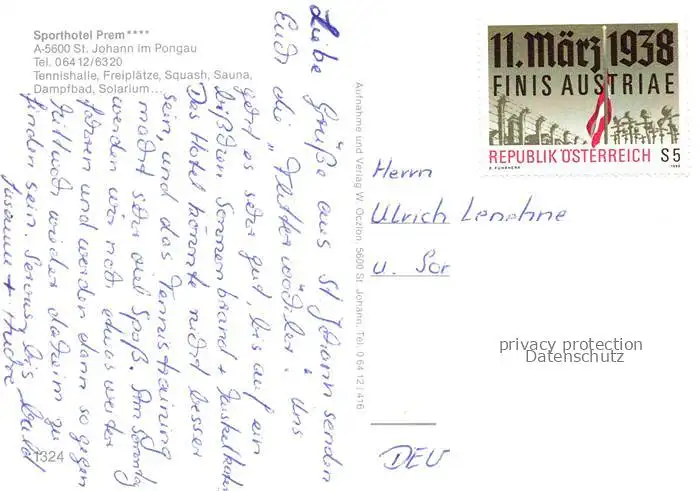 Sporthotel Prem****
A-5600 St. Johann im Pongau
Tel. 06412/6320
Tennishalle, Freiplätze, Squash, Sauna,
Dampfbad, Solarium...
Liebe Grüße aus St. Johann senden
Euch die „Dutterwödiler". Uns
geht es sehr gut, bis auf ein
bißchen Sonnenbrand + Muskelkater
Das Hotel könnte nicht besser
sein, und das Tennistraining
macht sehr viel Spaß. Am Sonntag
werden wir noch etwas weiter
fahren und werden dann so gegen
Mittwoch wieder daheim zu
finden sein. Servus, bis bald
Susanne + Andre
1324
Aufnahme und Verlag W. Oczlon, 5600 St. Johann, Tel. 06412/416
11. März 1938
FINIS AUSTRIAE
REPUBLIK ÖSTERREICH S 5
Herrn
Ulrich
u.
privacy protection
Datenschutz
DEU